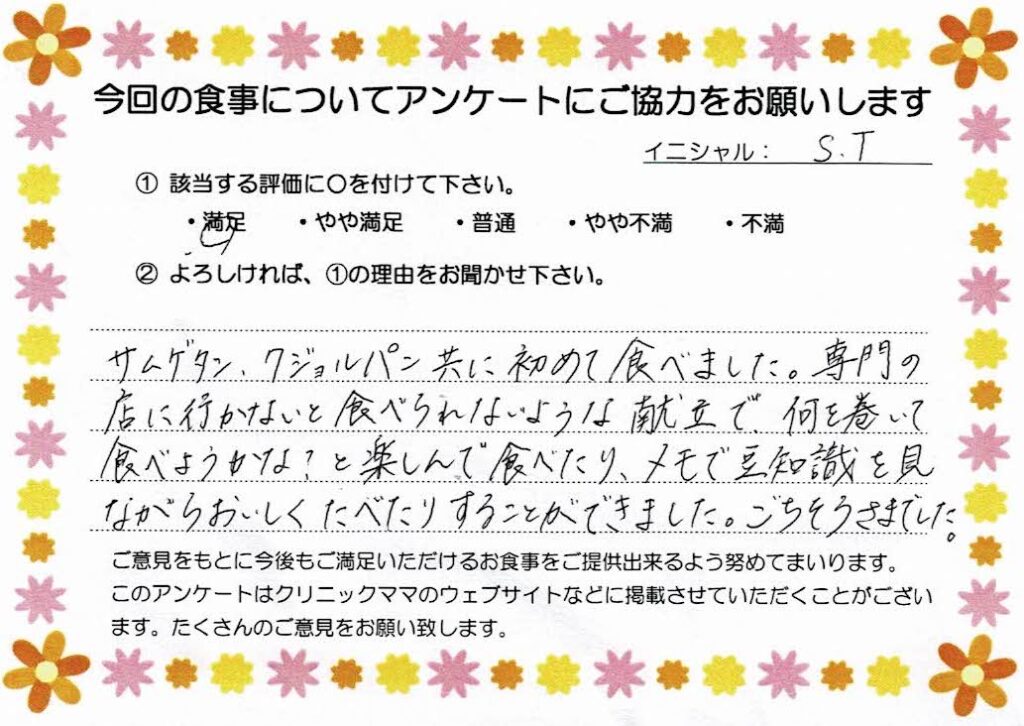 今回の食事についてアンケートにご協力をお願いします
イニシャル： S.T
① 該当する評価に〇を付けて下さい。
・満足 ・やや満足 ・普通 ・やや不満 ・不満
② よろしければ、①の理由をお聞かせ下さい。
サムゲタン、クジョルパン共に初めて食べました。専門の
店に行かないと食べられないような献立で、何を巻いて
食べようかな？と楽しんで食べたり、メモで豆知識を見
ながらおいしくたべたりすることができました。ごちそうさまでした。
ご意見をもとに今後もご満足いただけるお食事をご提供出来るよう努めてまいります。
このアンケートはクリニックママのウェブサイトなどに掲載させていただくことがござい
ます。たくさんのご意見をお願い致します。